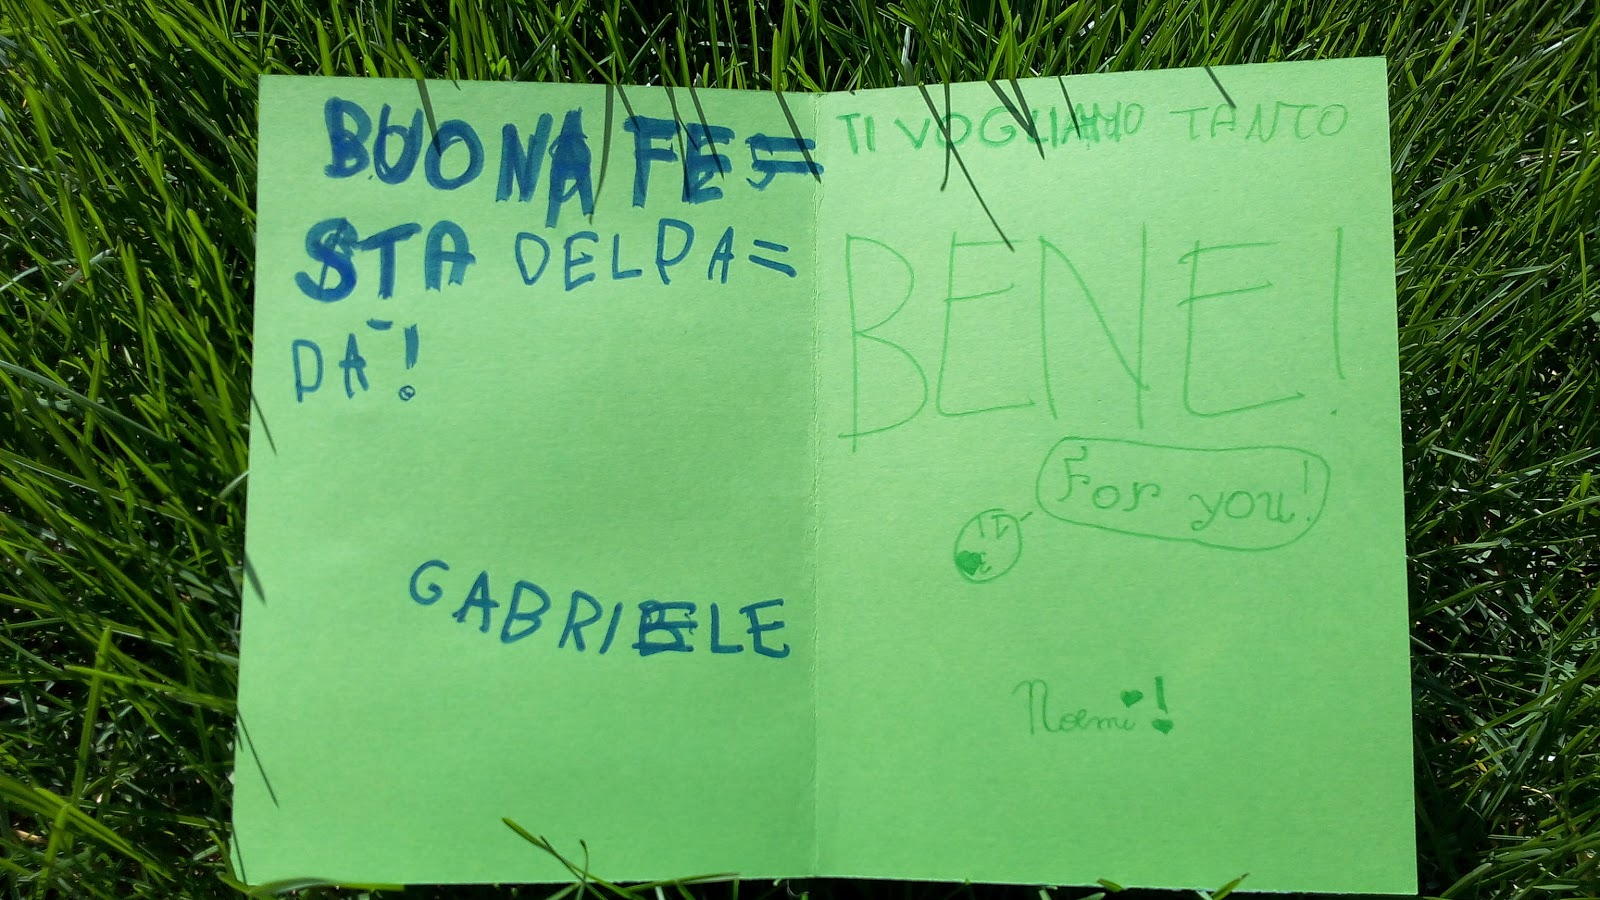 BUONA FE=
STA DEL PA=
PÀ!
GABRIELE
TI VOGLIAMO TANTO
BENE!
For you!
Noemi!